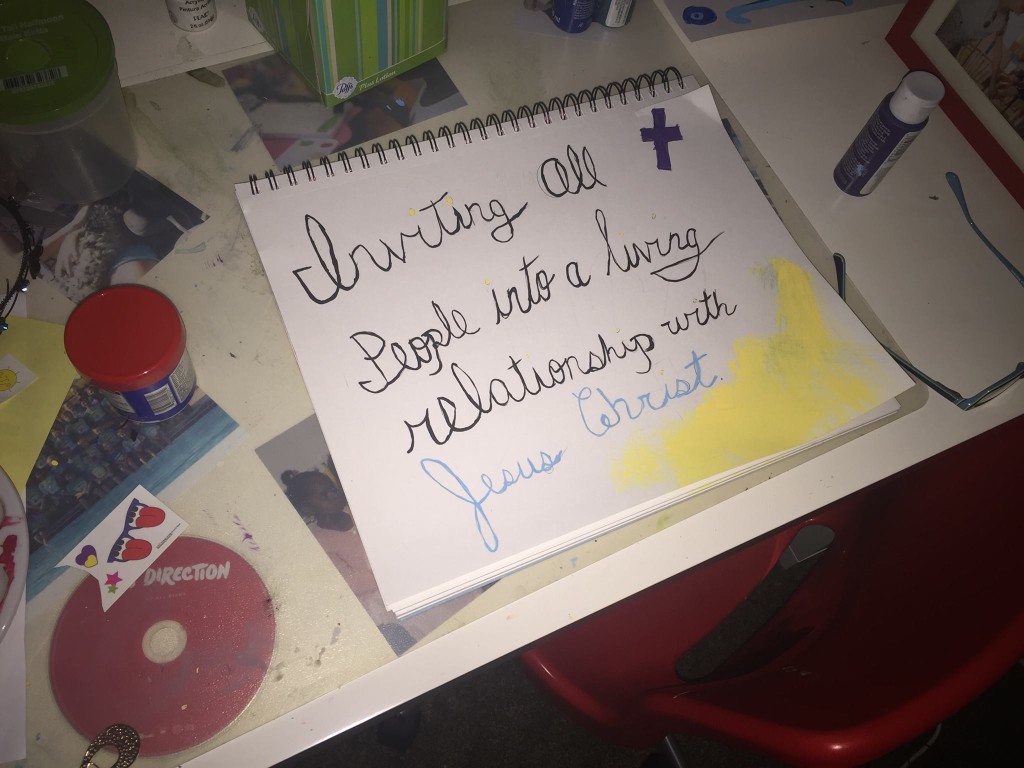 Inviting All
People into a living
relationship with
Jesus Christ.
DIRECTION
Puffs
Plus Lotion